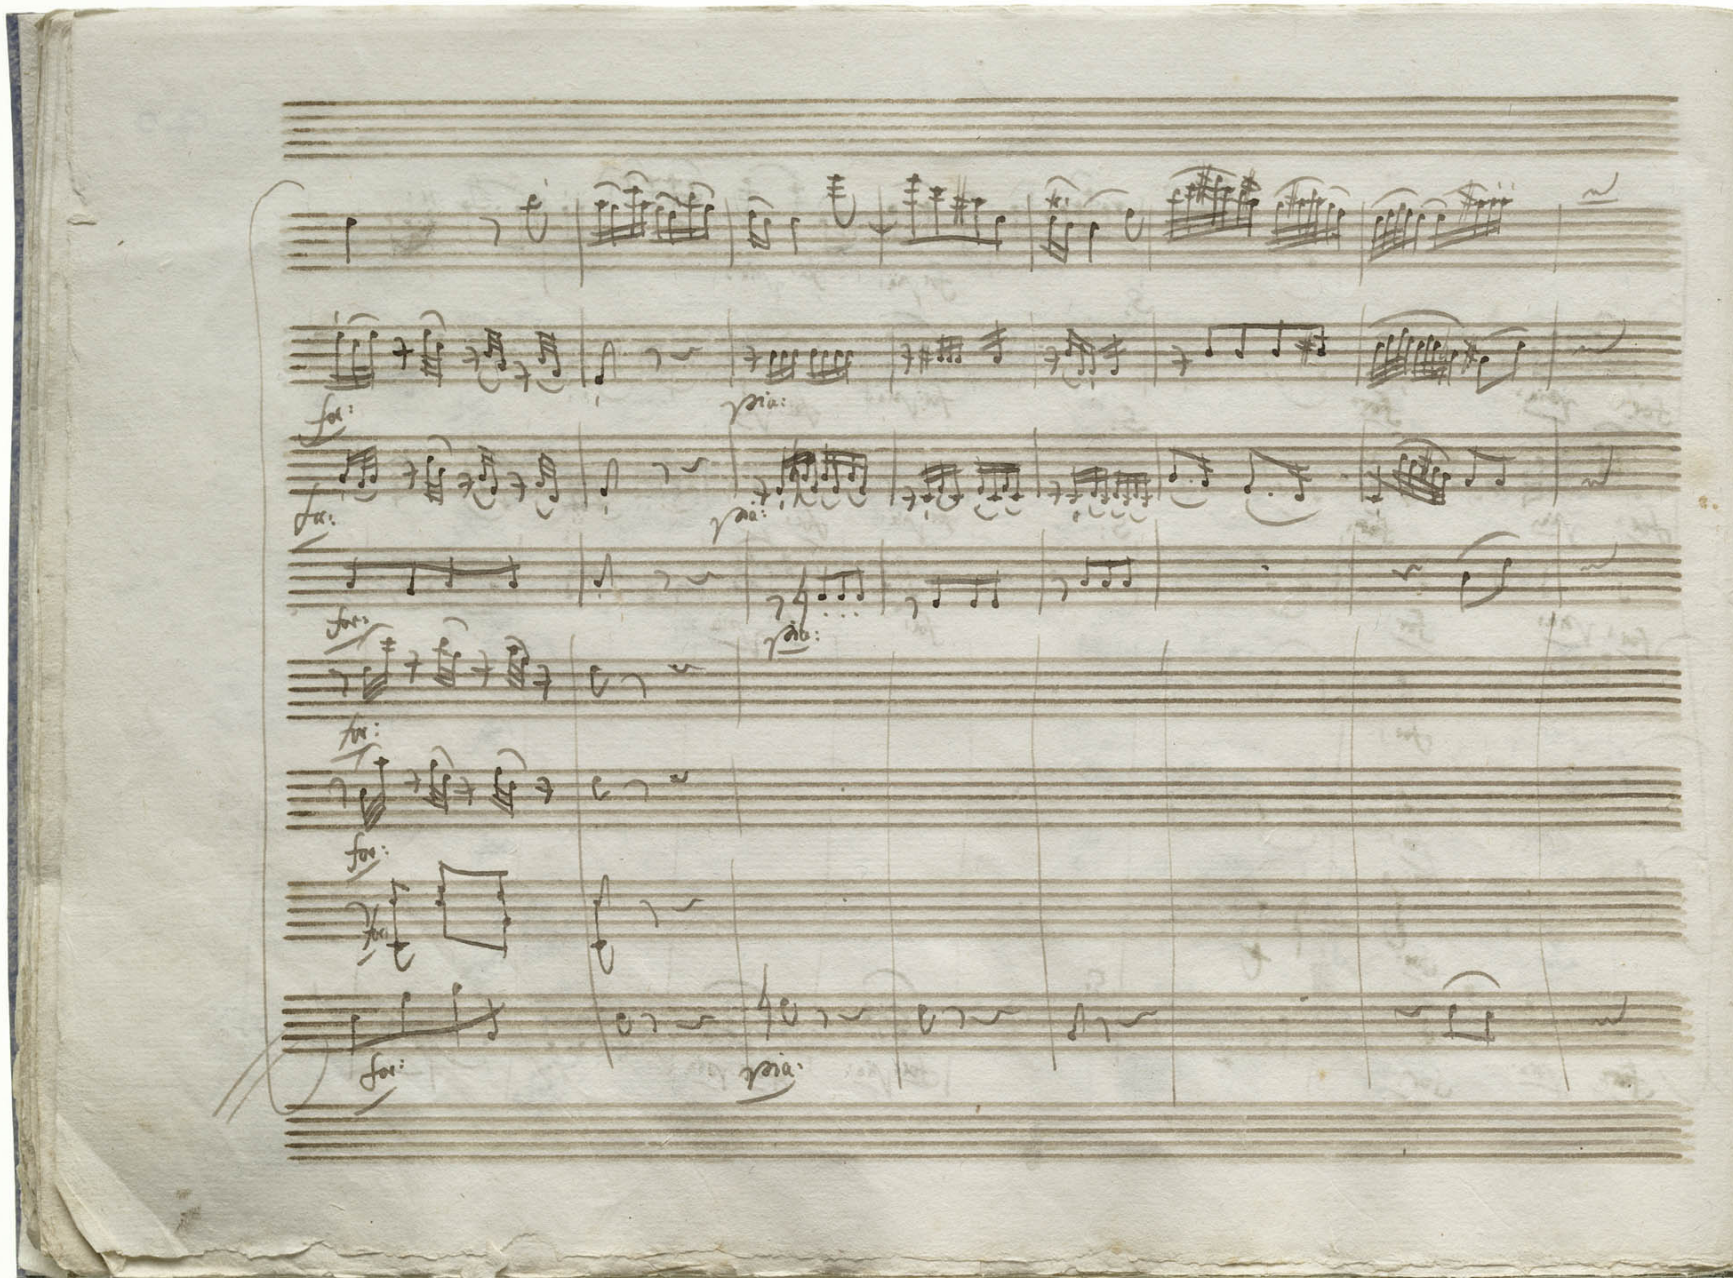 pia:
for:
for: pia:
for: pia:
for:
for:
for:
for: pia: